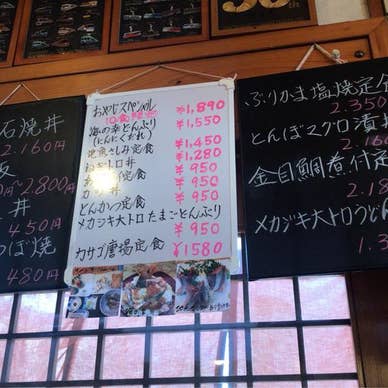 石焼丼
2.160円
円〜2.800円
丼
450円
つぼ焼
480円
おやじスペシャル ¥1,890
海の幸どんぶり ¥1,550
(にんにくだれ)
地魚さしみ定食 ¥1,450
¥1,280
¥950
¥950
カツ丼 ¥950
とんかつ定食 ¥950
メカジキ大トロたまごとんぶり
¥950
カサゴ唐揚定食 ¥1580
ぶりかま塩焼定食
2.350
とんぼマグロ漬
金目鯛煮付定
メカジキ大トロうどん